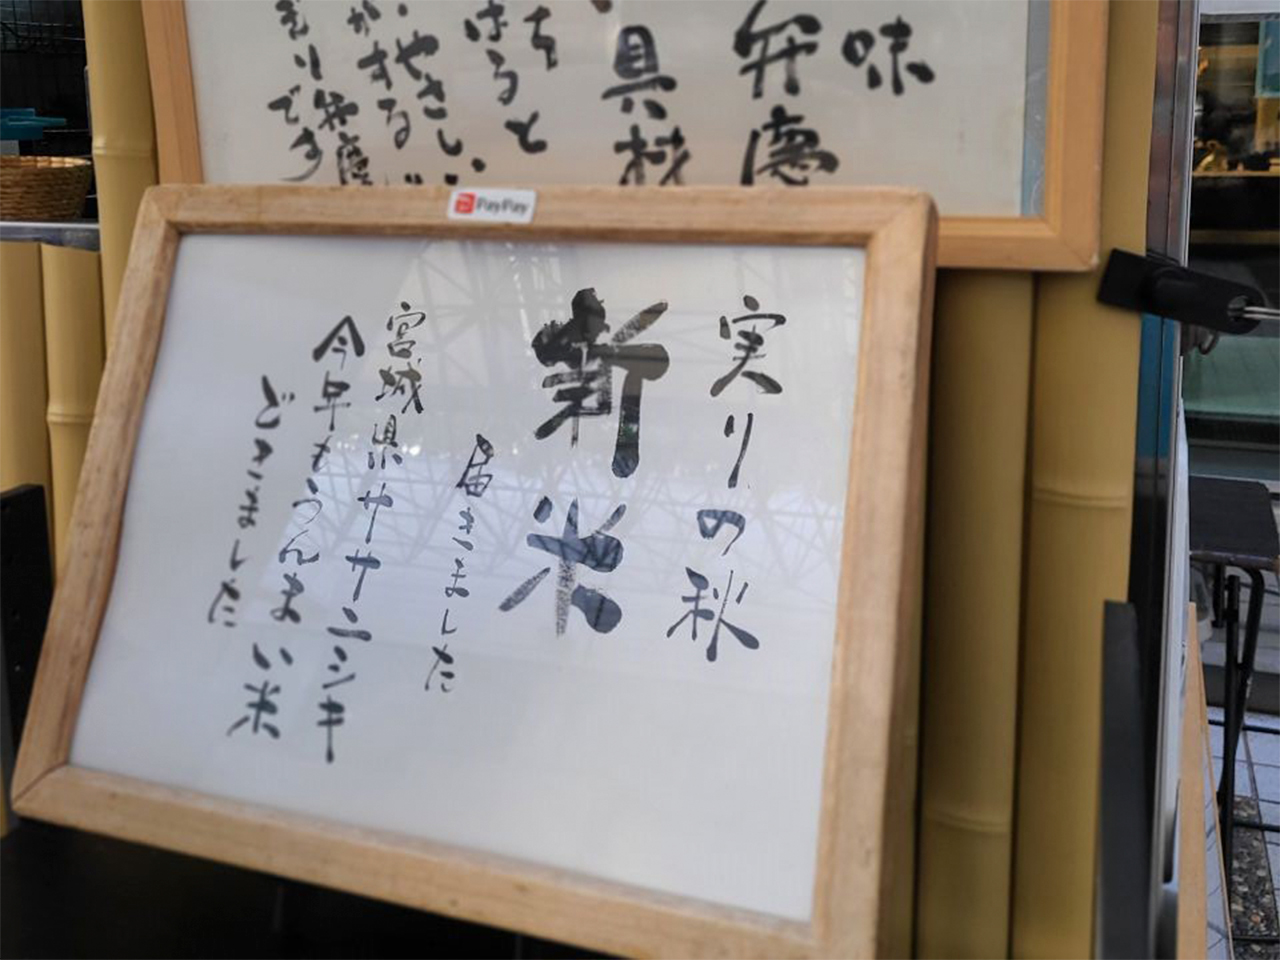 味
弁慶
具材
はると
やさしい
がする
りです
PayPay
実りの秋
新米
届きました
宮城県ササニシキ
今年もうんまい米
どきました